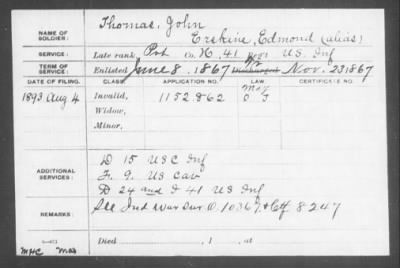 NAME OF SOLDIER: Thomas, John
Erskine, Edmond (alias)
SERVICE: Late rank, Pvt Co. K, 41 Reg't U.S. Inf
TERM OF SERVICE: Enlisted June 8, 1867 Discharged Nov. 23 1867
DATE OF FILING. CLASS. APPLICATION NO. LAW. CERTIFICATE NO.
1893 Aug 4 Invalid, 1152862
Widow,
Minor,
ADDITIONAL SERVICES: D 15 USC Inf
F. 9. US Cav
D 24 and I 41 US Inf
REMARKS: See Ind War Sur O. 10367 & Ctf 8247
Died , 1 , at